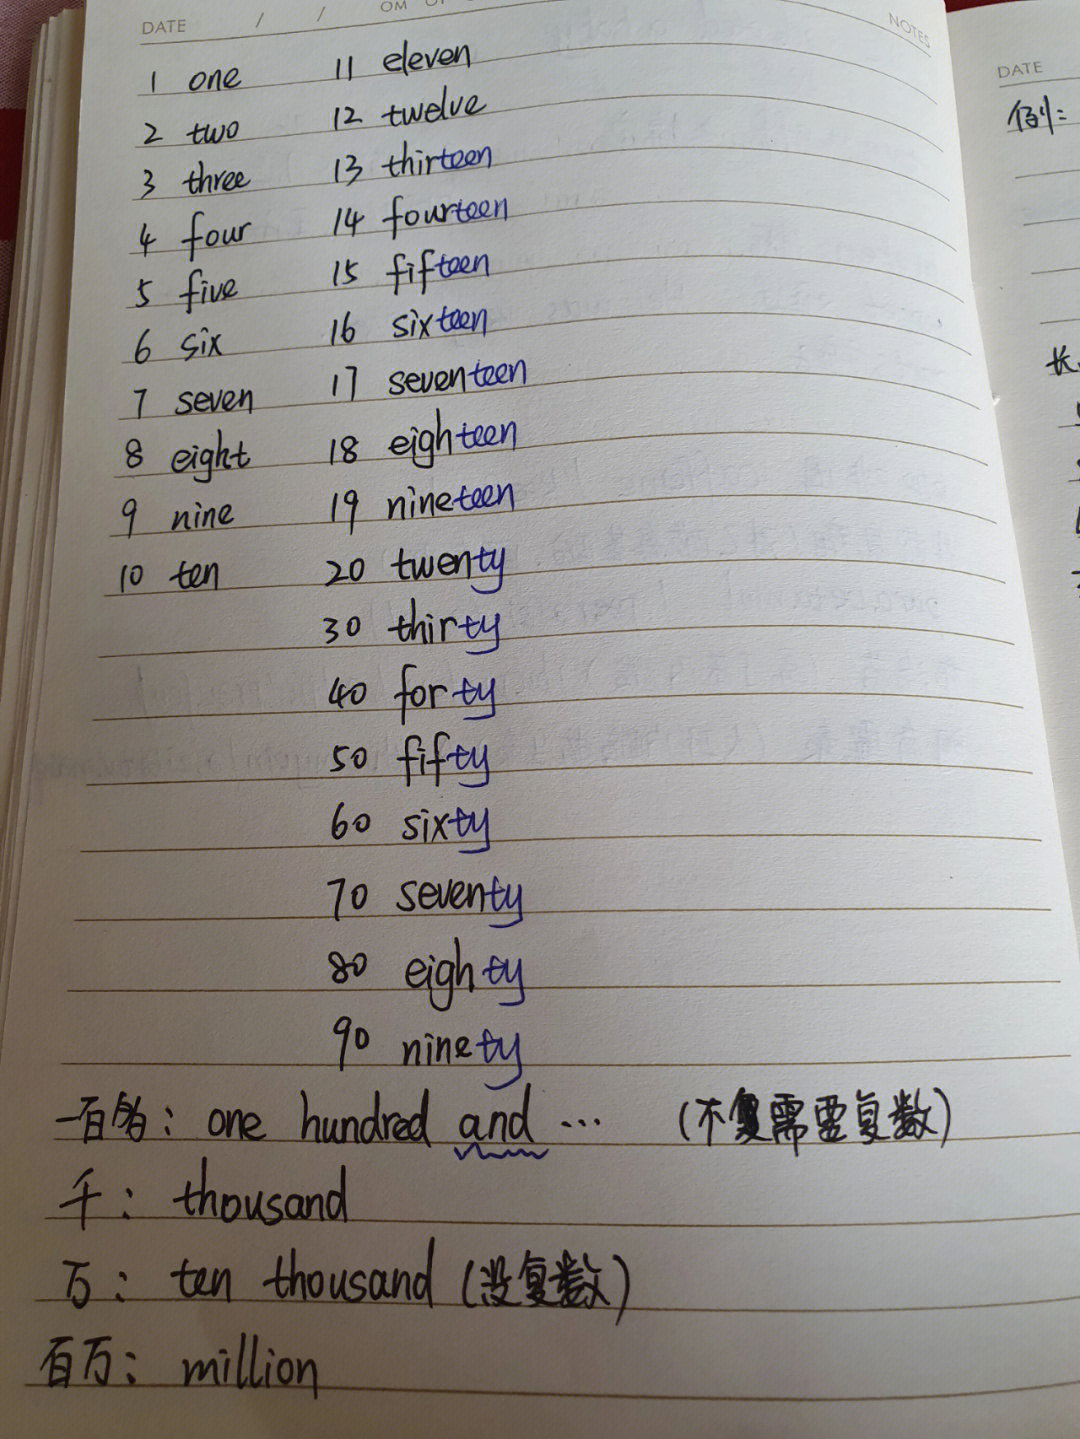 DATE / / OM
NOTES
1 one 11 eleven
2 two 12 twelve
3 three 13 thirteen
4 four 14 fourteen
5 five 15 fifteen
6 six 16 sixteen
7 seven 17 seventeen
8 eight 18 eighteen
9 nine 19 nineteen
10 ten 20 twenty
30 thirty
40 forty
50 fifty
60 sixty
70 seventy
80 eighty
90 ninety
一百多: one hundred and ... (不需要复数)
千: thousand
万: ten thousand (没复数)
百万: million
DATE
例:
长